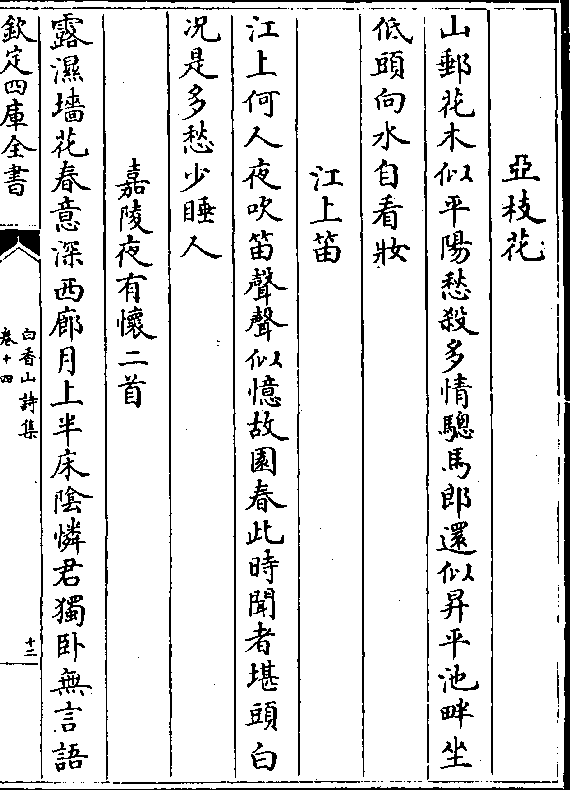 亞枝花
山郵花木似平陽愁殺多情驄馬郎還似昇平池畔坐
低頭向水自看妝
江上笛
江上何人夜吹笛聲聲似憶故園春此時聞者堪頭白
况是多愁少睡人
嘉陵夜有懷二首
露濕墻花春意深西廊月上半床陰憐君獨卧無言語
欽定四庫全書
白香山詩集
卷十四
十三